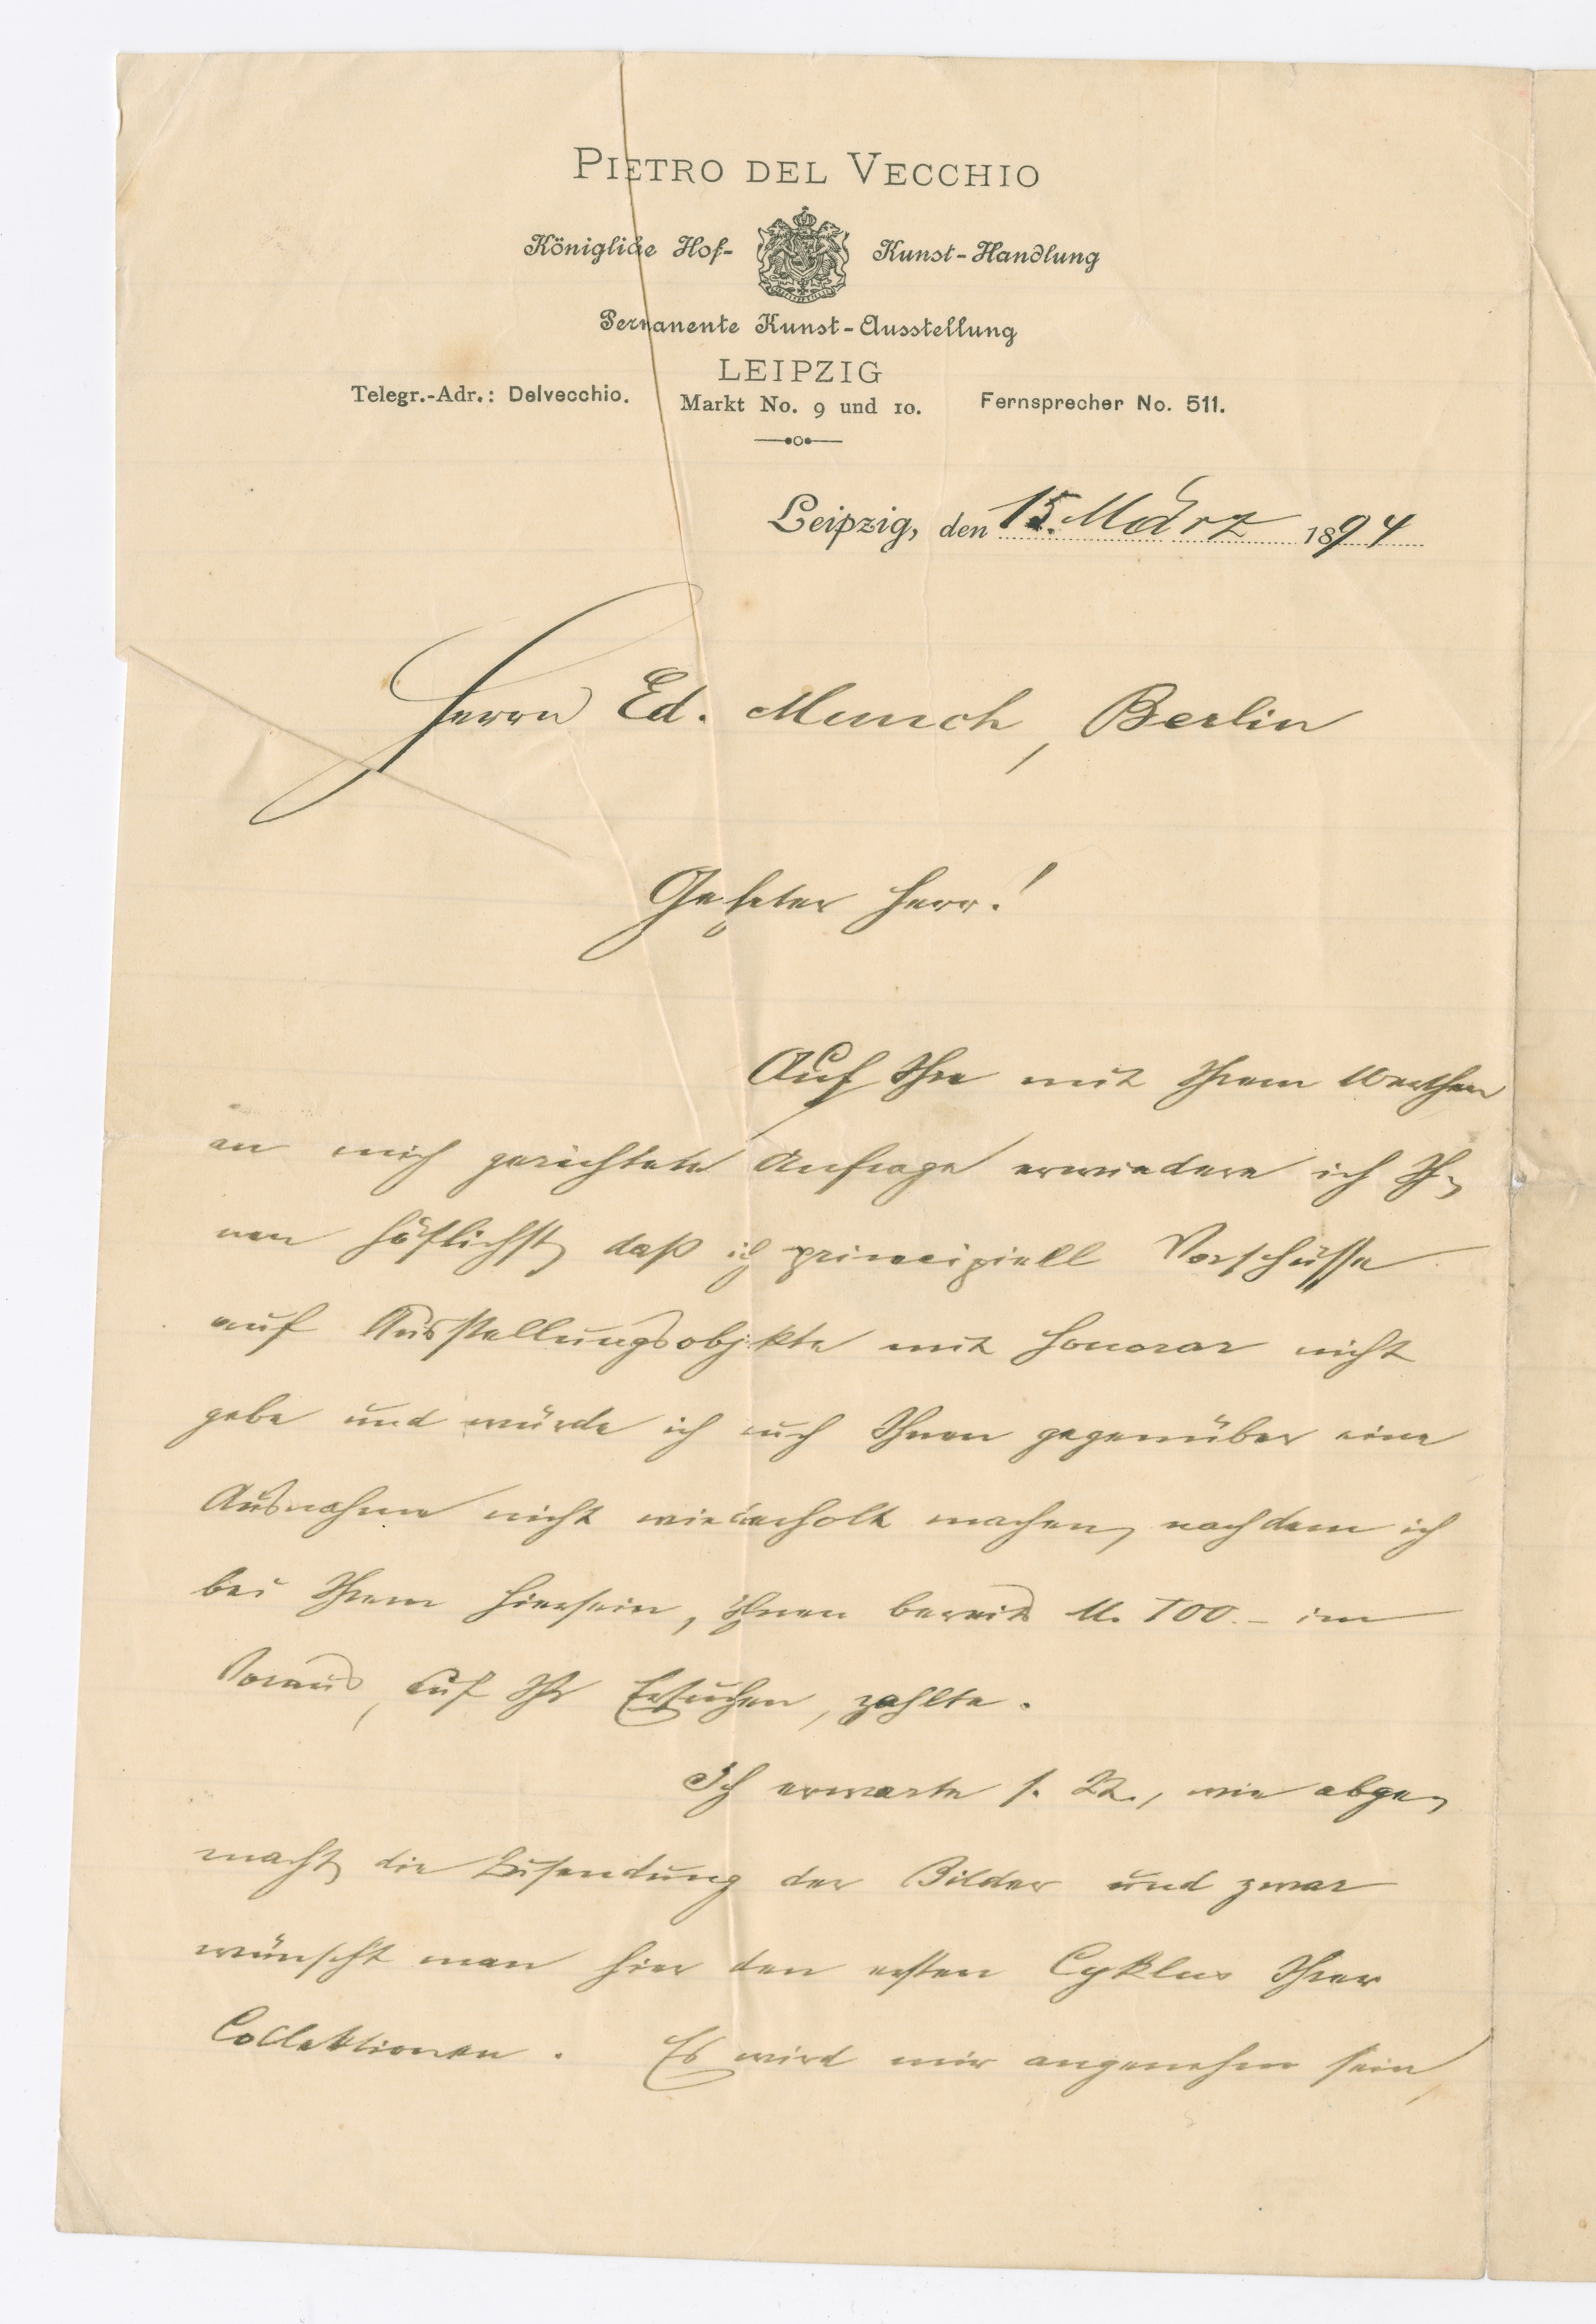 PIETRO DEL VECCHIO
Königliche Hof- Kunst-Handlung
Permanente Kunst-Ausstellung
LEIPZIG
Telegr.-Adr.: Delvecchio. Markt No. 9 und 10. Fernsprecher No. 511.
Leipzig, den 15. März 1894
Herrn Ed. Munch, Berlin
Geehrter Herr!
Auf Ihre mit Ihrem Werthen
an mich gerichtete Anfrage erwiedere ich Ih-
nen höflichst, daß ich principiell Vorschüsse
auf Ausstellungsobjekte mit Honorar nicht
gebe und würde ich auch Ihnen gegenüber eine
Ausnahme nicht wiederholt machen, nachdem ich
bei Ihrem Hiersein, Ihnen bereits M. 100.- im
Voraus, auf Ihr Ersuchen, zahlte.
Ich erwarte s. Zt., wie abge-
macht, die Zusendung der Bilder und zwar
wünscht man hier den ersten Cyklus Ihrer
Collektionen. Es wird mir angenehm sein,